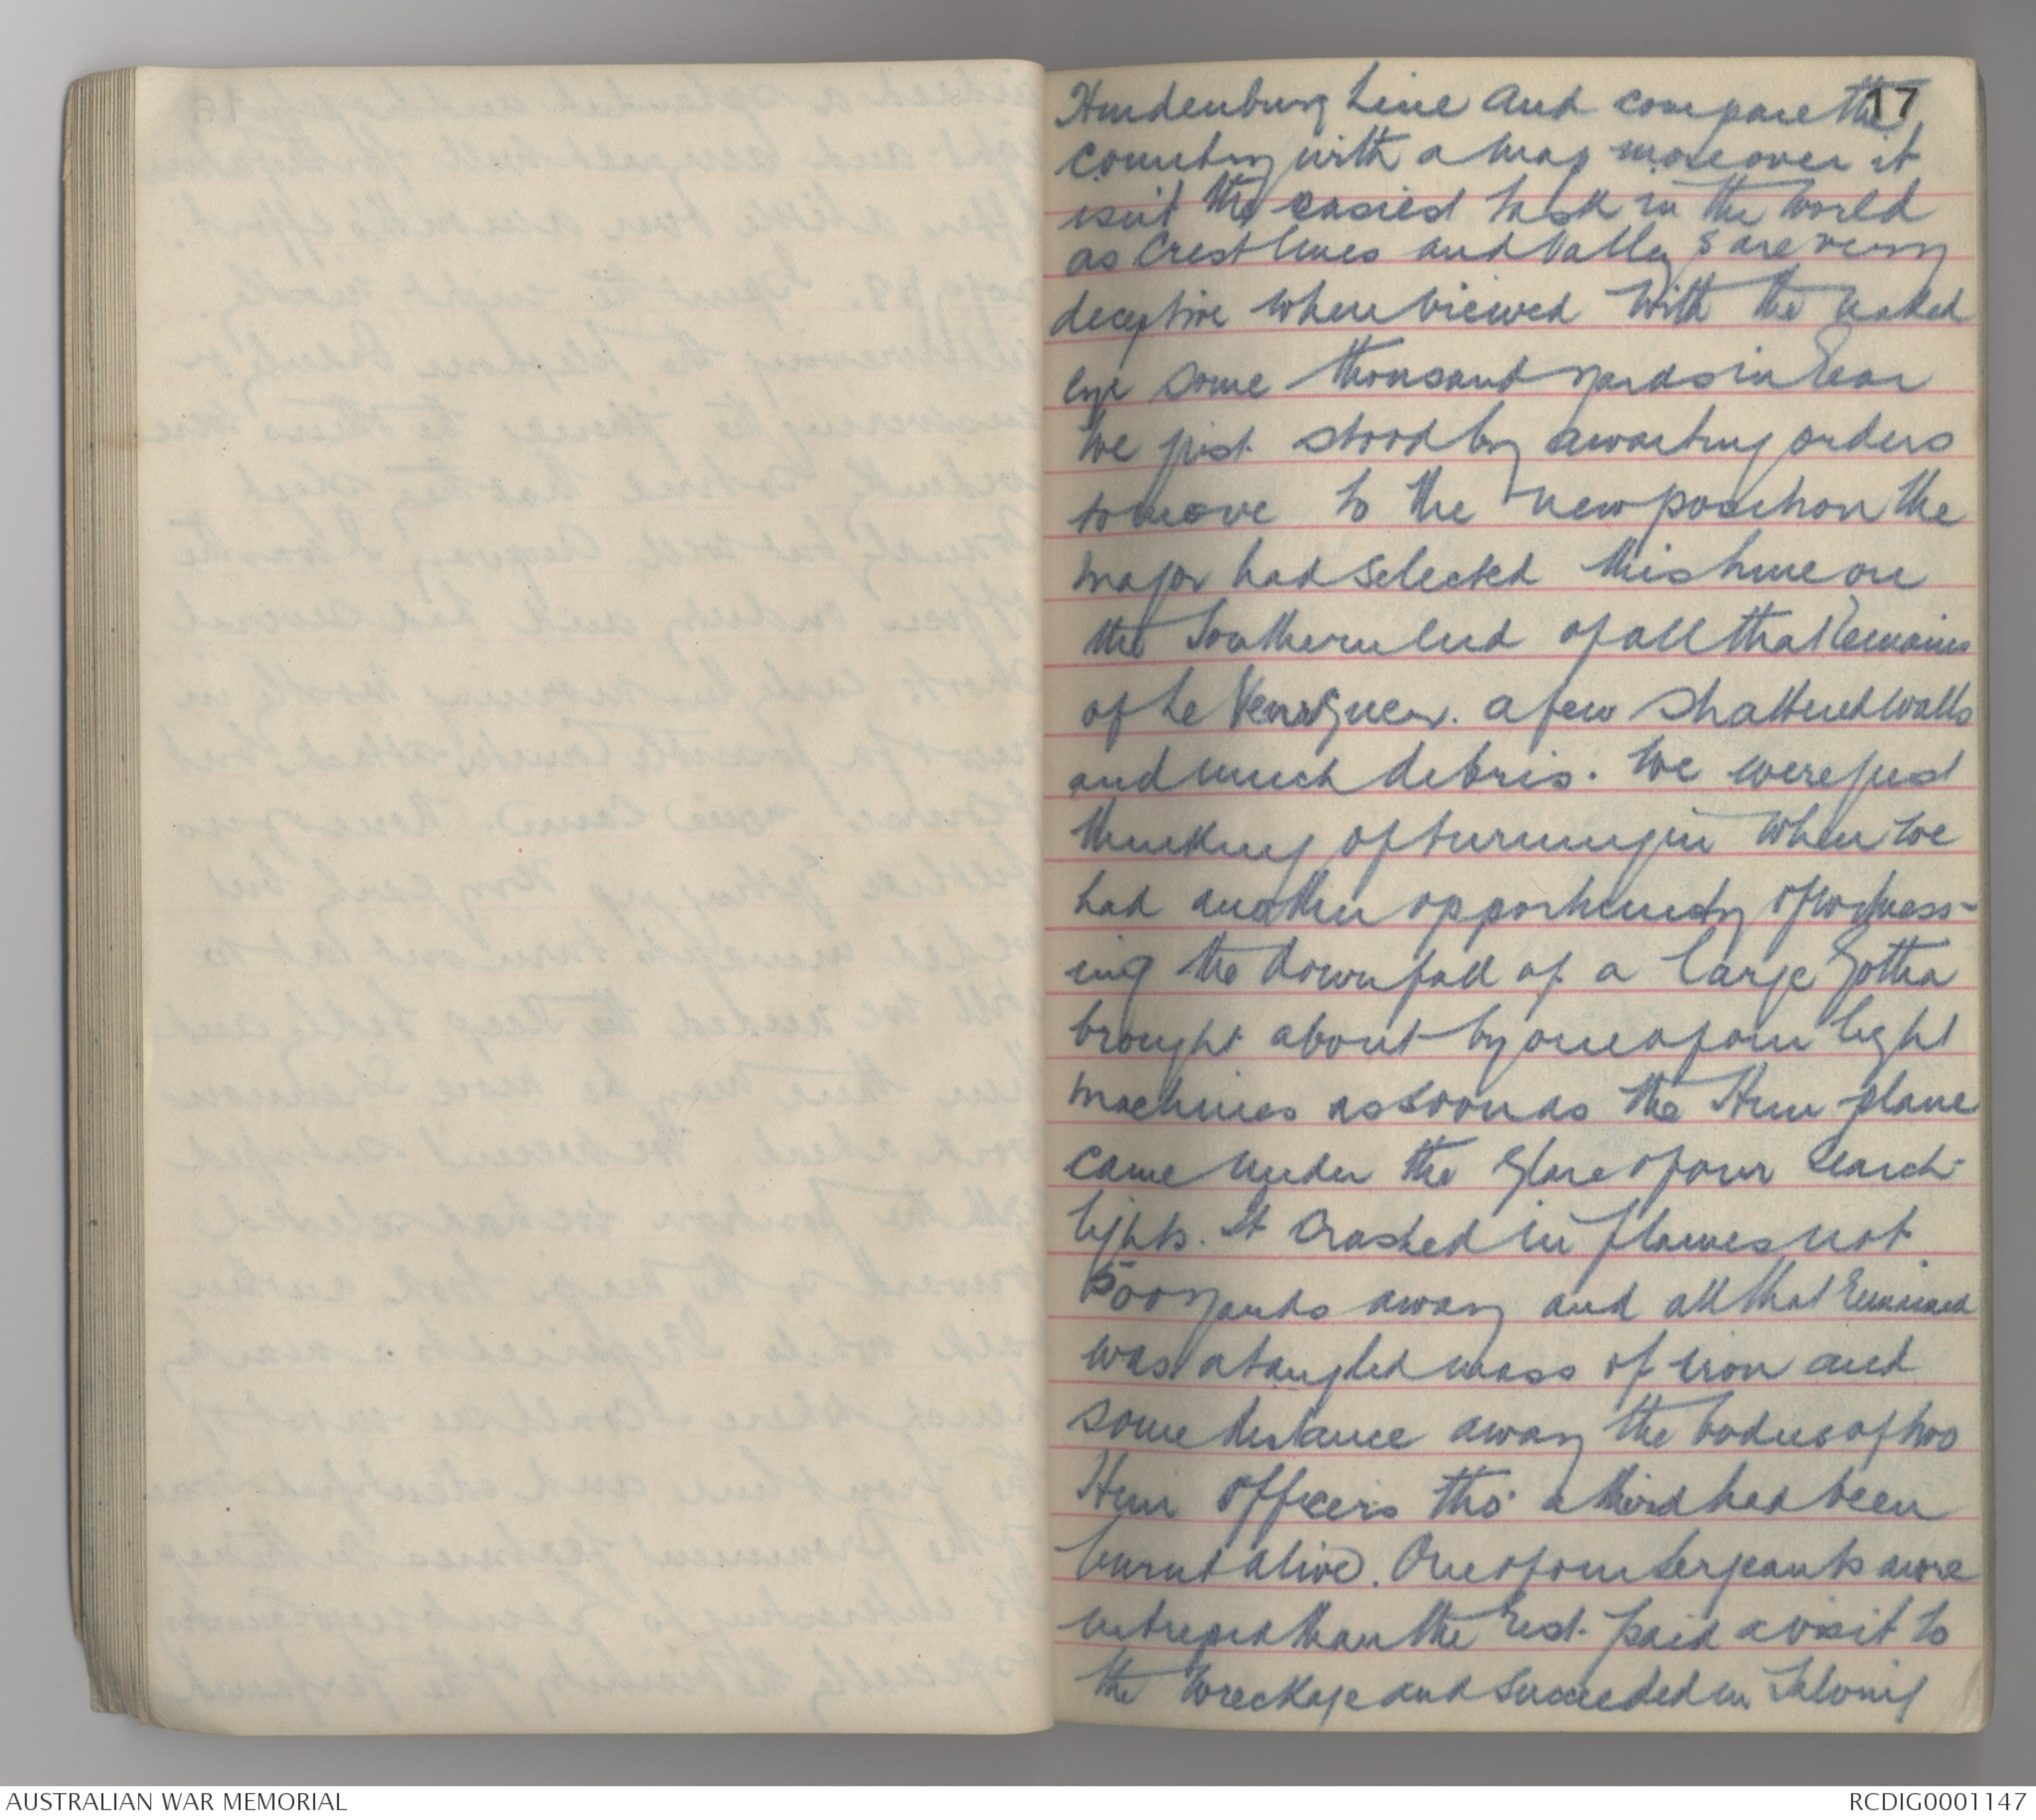 17
Hindenburg Line and compare the
country with a map moreover it
isn't the easiest task in the world
as Crest lines and Valleys are very
deceptive when viewed with the naked
eye some thousand yards in rear
We just stood by awaiting orders
to move to the new position the
Major had selected this time on
the Southern end of all that remains
of Le Verguier. a few shattered walls
and much debris. We were just
thinking of turning in when we
had another opportunity of witness-
ing the downfall of a large Gotha
brought about by one of our light
machines as soon as the Hun plane
came under the glare of our search-
lights. It crashed in flames not
500 yards away and all that remained
was a tangled mass of iron and
some distance away the bodies of two
Hun officers tho' a third had been
burnt alive. One of our Sergeants more
intrepid than the rest paid a visit to
the wreckage and succeeded in salving
AUSTRALIAN WAR MEMORIAL
RCDIG0001147